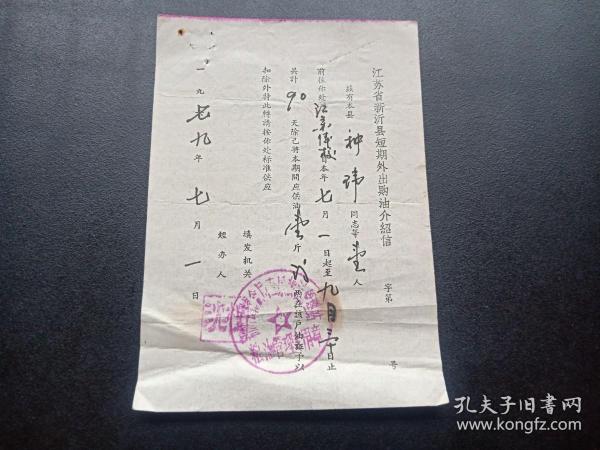 江苏省新沂县短期外出购油介紹信
字第 号
茲有本县 种玮 同志等 壹 人
前往你处 江泉儀校 本年 七 月 一 日起至 九 月 三十 日止
共計 90 天除已將本期間应供油 壹 斤 捌 兩在該戶油証予以
扣除外特此轉請按你处标准供应
填发机关
經办人
一九七九年七月一日
孔夫子旧书网
www.kongfz.com